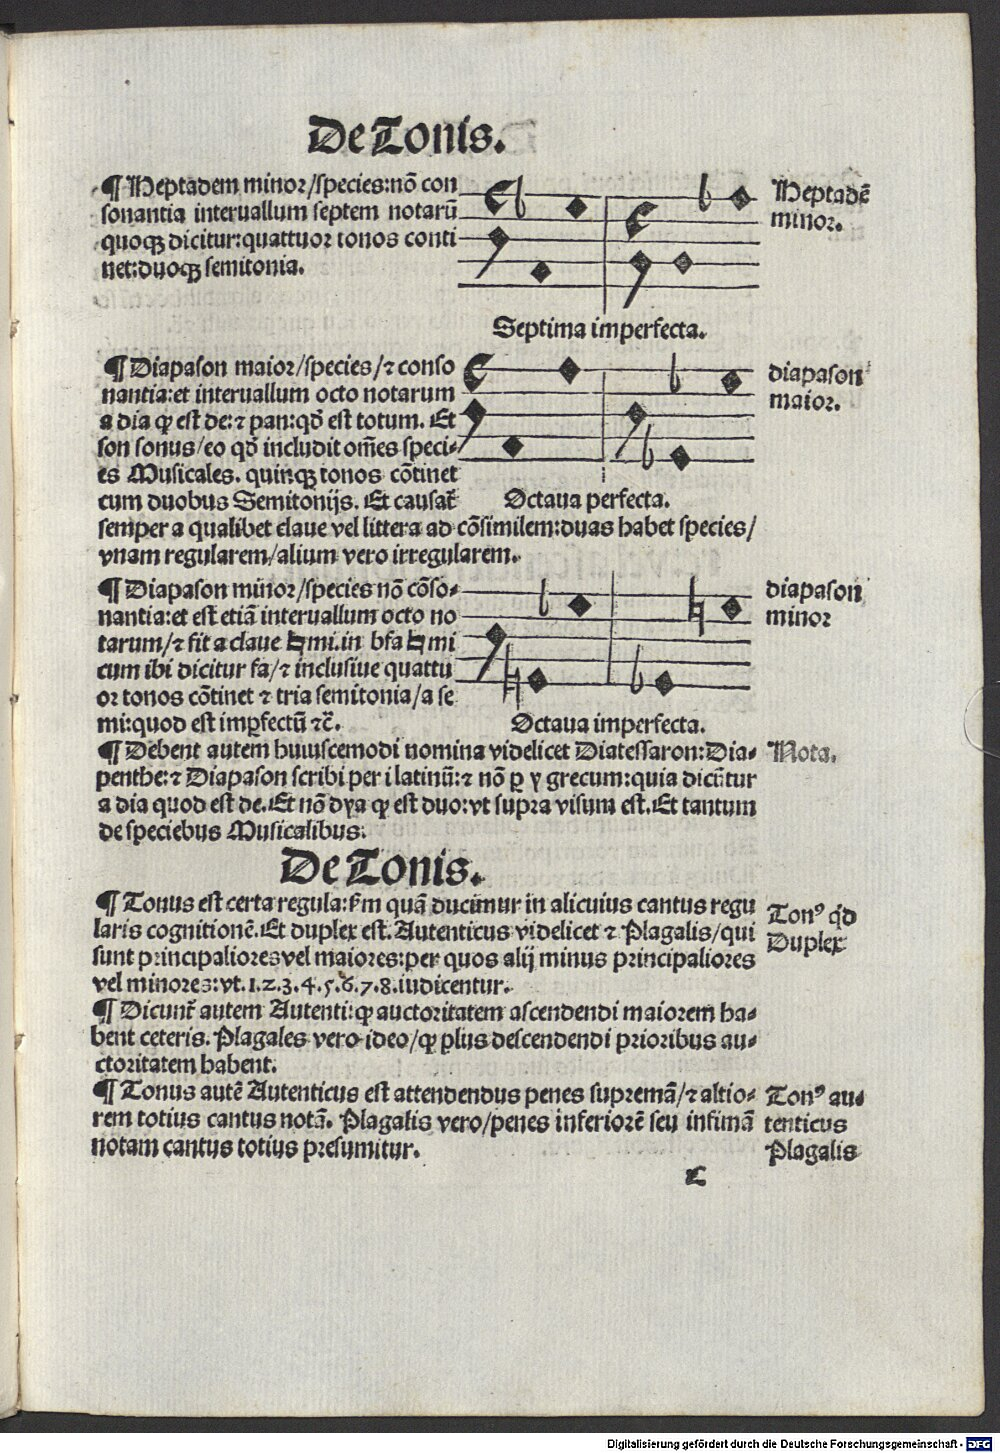 De Tonis.
¶ Heptadem minor/species:nō con
sonantia interuallum septem notarū
quoqꝫ dicitur:quattuor tonos conti
net:duoqꝫ semitonia.
Heptadē
minor.
Septima imperfecta.
¶ Diapason maior/species/⁊ conso
nantia:et interuallum octo notarum
a dia ꝙ est de:⁊ pan:qď est totum. Et
son sonus/eo qď includit oēs speci⸗
es Musicales. quinqꝫ tonos cōtinet
cum duobus Semitonijs. Et causat̄
semper a qualibet claue vel littera ad cōsimilem:duas habet species/
vnam regularem/alium vero irregularem.
diapason
maior.
Octaua perfecta.
¶ Diapason minor/species nō cōso⸗
nantia:et est etiā interuallum octo no
tarum/⁊ fit a claue ♮mi.in bfa♮mi
cum ibi dicitur fa/⁊ inclusiue quattu
or tonos cōtinet ⁊ tria semitonia/a se
mi:quod est imꝑfectū ⁊c̄.
diapason
minor
Octaua imperfecta.
¶ Debent autem huiuscemodi nomina videlicet Diatessaron:Dia⸗
penthe:⁊ Diapason scribi per i latinū:⁊ nō ꝑ y grecum:quia dicūtur
a dia quod est de.Et nō dya ꝙ est duo:vt supra visum est.Et tantum
de speciebus Musicalibus.
Nota.
De Tonis.
¶ Tonus est certa regula:ẜm quā ducimur in alicuius cantus regu
laris cognitionē.Et duplex est.Autenticus videlicet ⁊ Plagalis/qui
sunt principaliores vel maiores:per quos alij minus principaliores
vel minores:vt.1.2.3.4.5.6.7.8.iudicentur.
Tonꝰ qď
Duplex
¶ Dicunt̄ autem Autenti:ꝙ auctoritatem ascendendi maiorem ha⸗
bent ceteris. Plagales vero ideo/ꝙ plus descendendi prioribus au⸗
ctoritatem habent.
¶ Tonus autē Autenticus est attendendus penes supremā/⁊ altio⸗
rem totius cantus notā. Plagalis vero/penes inferiorē seu infimā
notam cantus totius presumitur.
Tonꝰ au⸗
tenticus
Plagalis
C
Digitalisierung gefördert durch die Deutsche Forschungsgemeinschaft - DFG